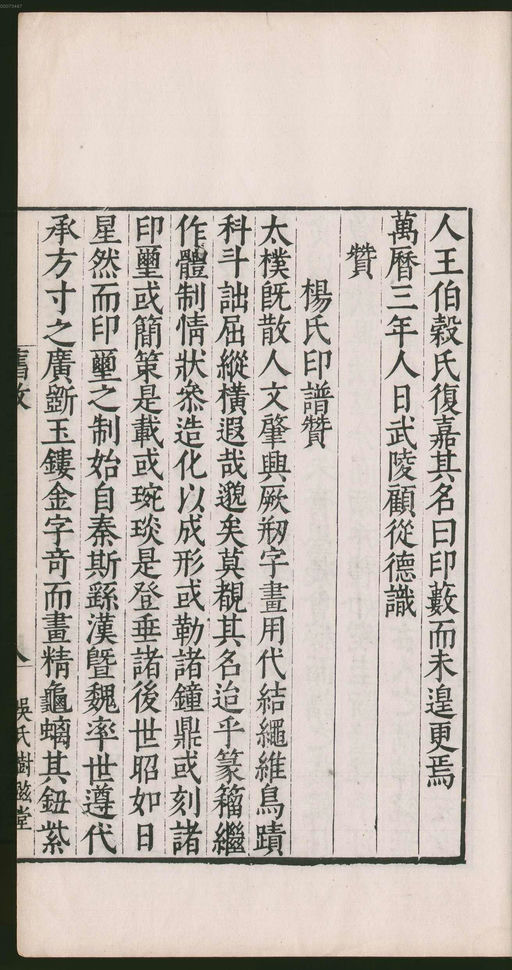 人王伯穀氏復嘉其名曰印藪而未遑更焉
萬曆三年人日武陵顧從德識
贊
楊氏印譜贊
太樸旣散人文肇興厥刱字畫用代結繩維鳥蹟
科斗詘屈縱橫遐哉邈矣莫覩其名迨乎篆籀繼
作體制情狀叅造化以成形或勒諸鐘鼎或刻諸
印璽或簡策是載或琬琰是登垂諸後世昭如日
星然而印璽之制始自秦斯繇漢曁魏率世遵代
承方寸之廣斵玉鏤金字奇而畫精龜螭其鈕紫
舊敘
八
吳氏樹滋堂
00073487